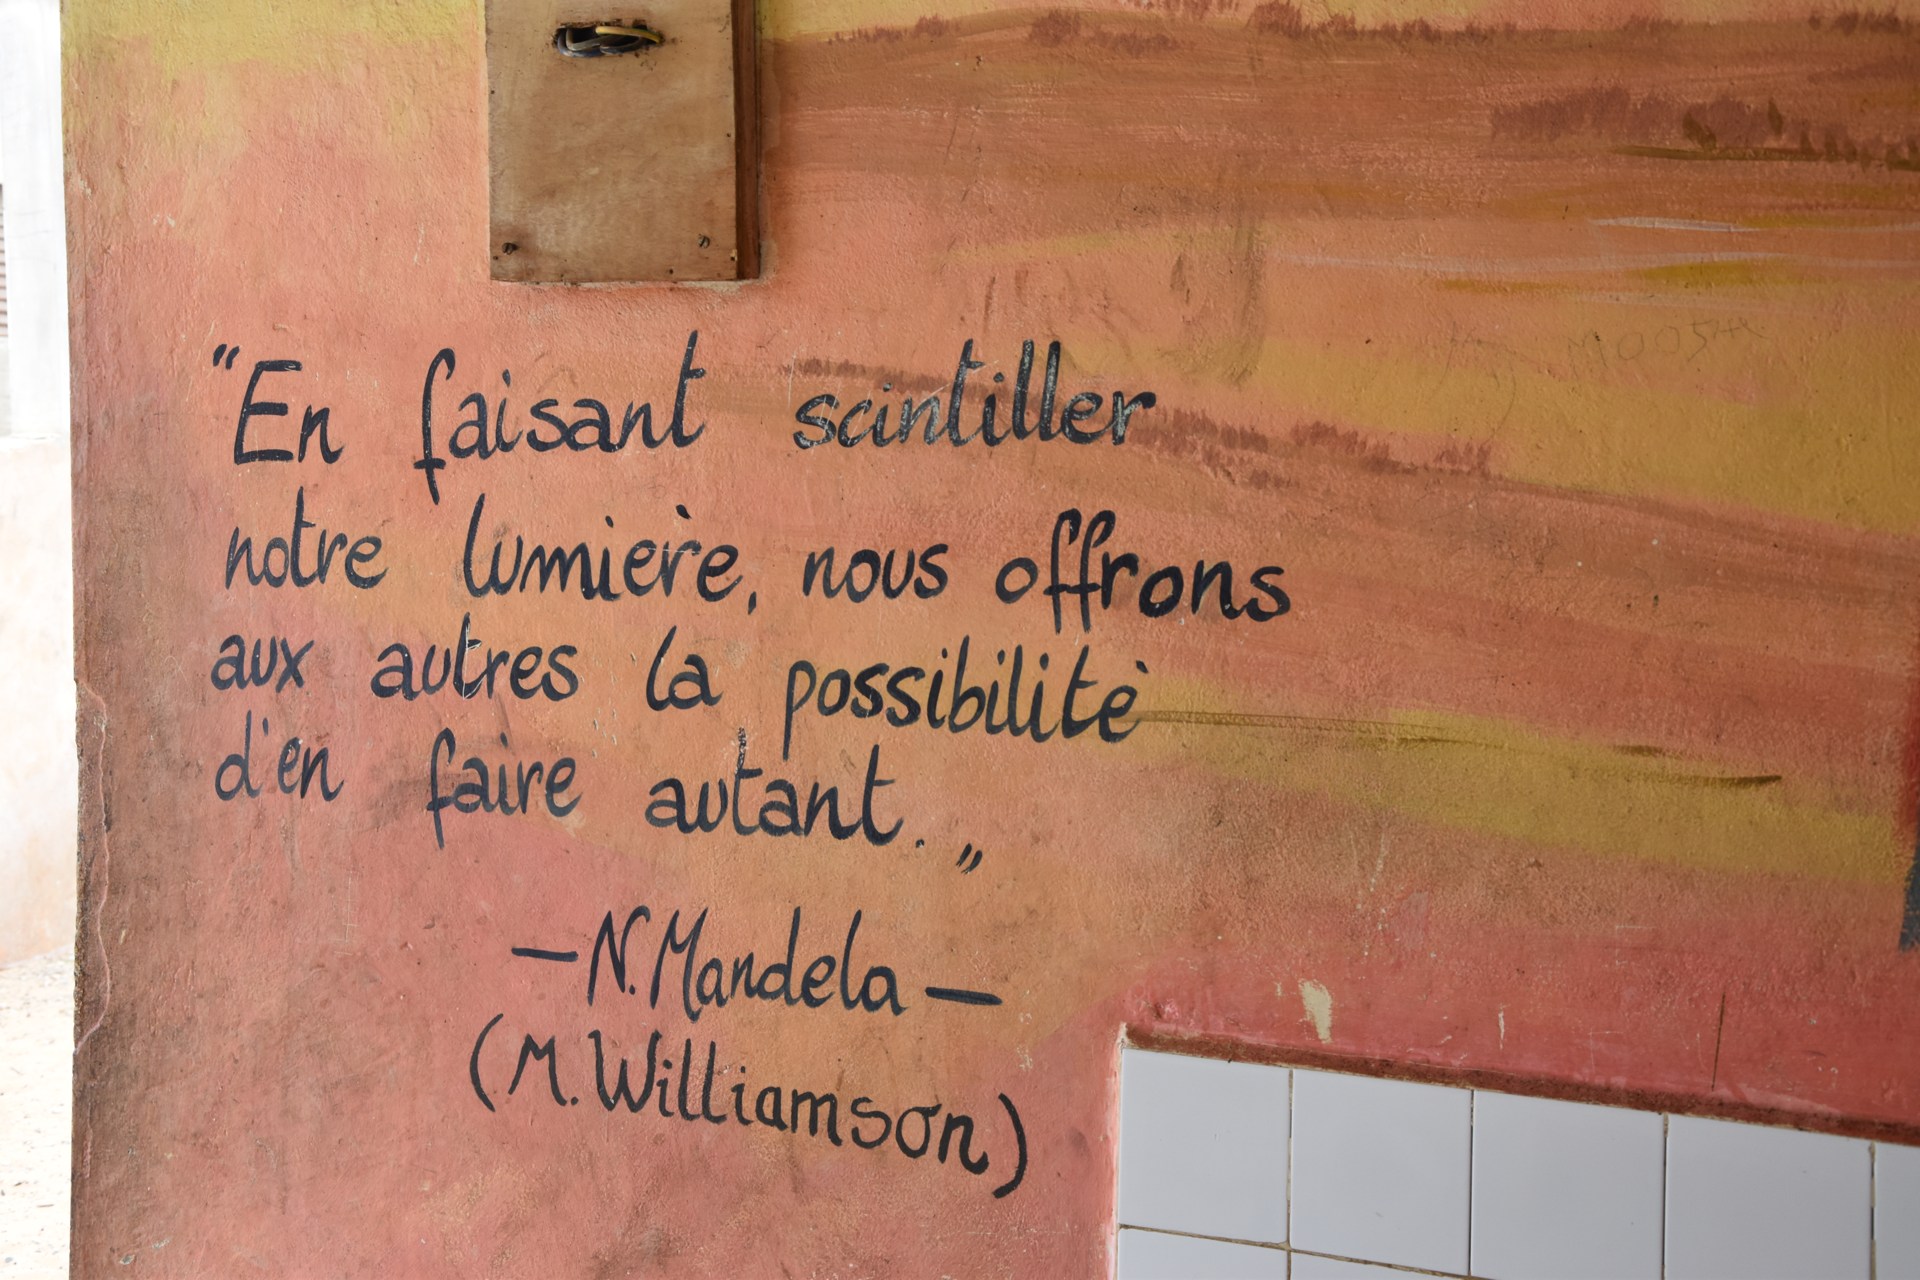 "En faisant scintiller
notre lumière, nous offrons
aux autres la possibilitè
d'en faire autant."
— N. Mandela —
(M. Williamson)